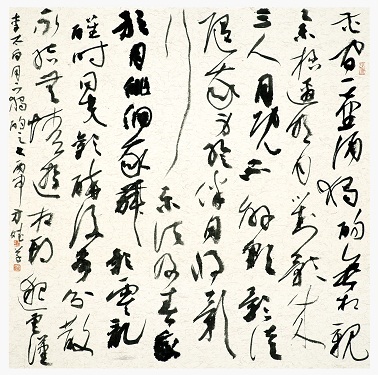 花間一壺酒獨酌無相親
舉杯邀明月對影成
三人月既不解飲影徒
隨我身暫伴月將影
行樂須及春我
歌月徘徊我舞影零亂
醒時同交歡醉後各分散
永結無情遊相期邈雲漢
李太白月下獨酌之一丙申